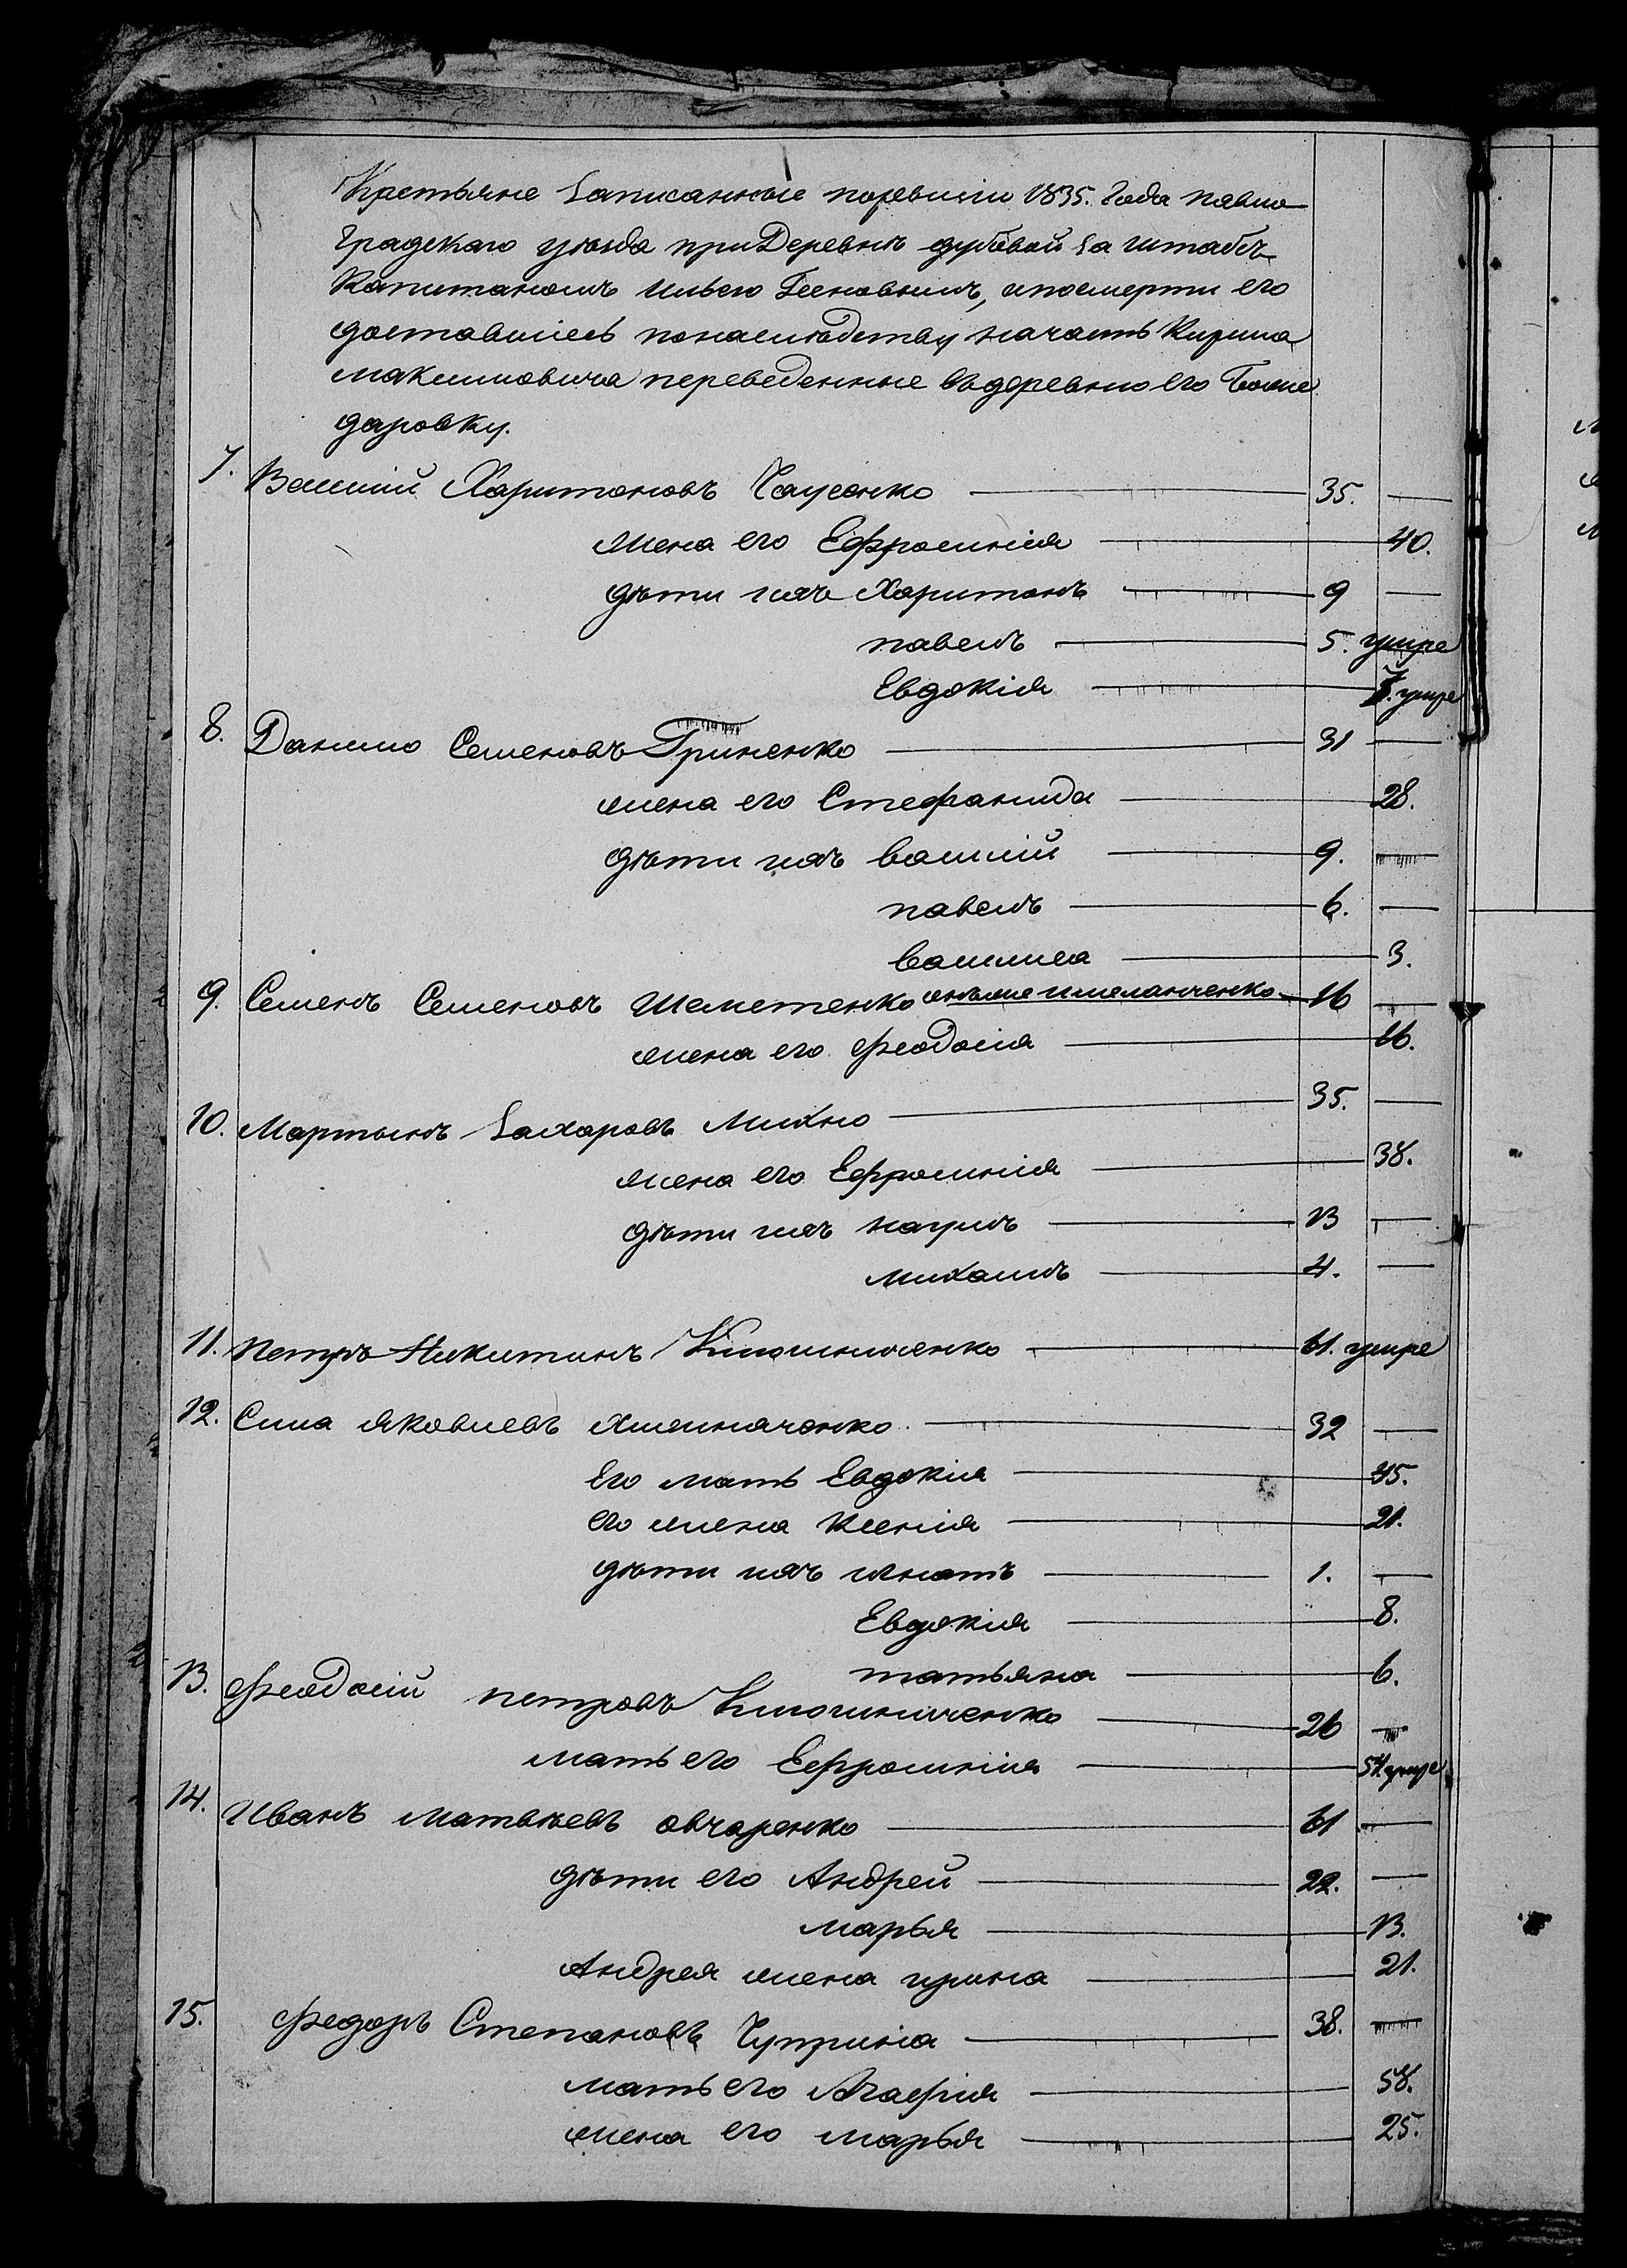 Крестьяне записанные поревизіи 1835. года павло
градскаго уѣзда приДеревнѣ дубовой за штабсъ
Капитаномъ Ильею Гесновымъ, ипосмерти его
доставшіесь понаслѣдству начасть Кирила
максимовича переведенные въдеревню его Боже
даровку.
7. Василій Харитоновъ Чаусенко 35.
жена его Ефросинія 40.
дѣти ихъ Харитонъ 9
павелъ 5. умре
Евдокія 7. умре
8. Данило Семеновъ Гриненко 31
жена его Стефанида 28.
дѣти ихъ василій 9.
павелъ 6.
василиса 3.
9. Семенъ Семеновъ Шеметенко 16
жена его феодосія 16.
10. Мартынъ Захаровъ Михно 35.
жена его Ефросинія 38.
дѣти ихъ наумъ 13
михаилъ 4.
11. петръ Никитинъ Ключниченко 61. умре
12. Сила яковлевъ 32
Его мать Евдокія 45.
его жена Ксенія 21.
дѣти ихъ игнатъ 1.
Евдокія 8.
татьяна 6.
13. феодосій петровъ Ключниченко 26
мать его Ефросинія 54. умре
14. Иванъ матвѣевъ овчаренко 61
дѣти его Андрей 22.
марья 13.
Андрея жена ирина 21.
15. федоръ Степановъ Чуприна 38.
мать его Агафія 58.
жена его марья 25.